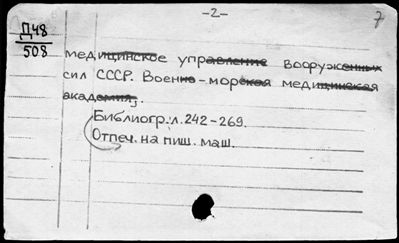 -2-
7
Д48
508
медицинское управление вооруженных
сил СССР. Военно-морская медицинская
академия].
Библиогр.:л.242-269.
Отпеч. на пиш. маш.